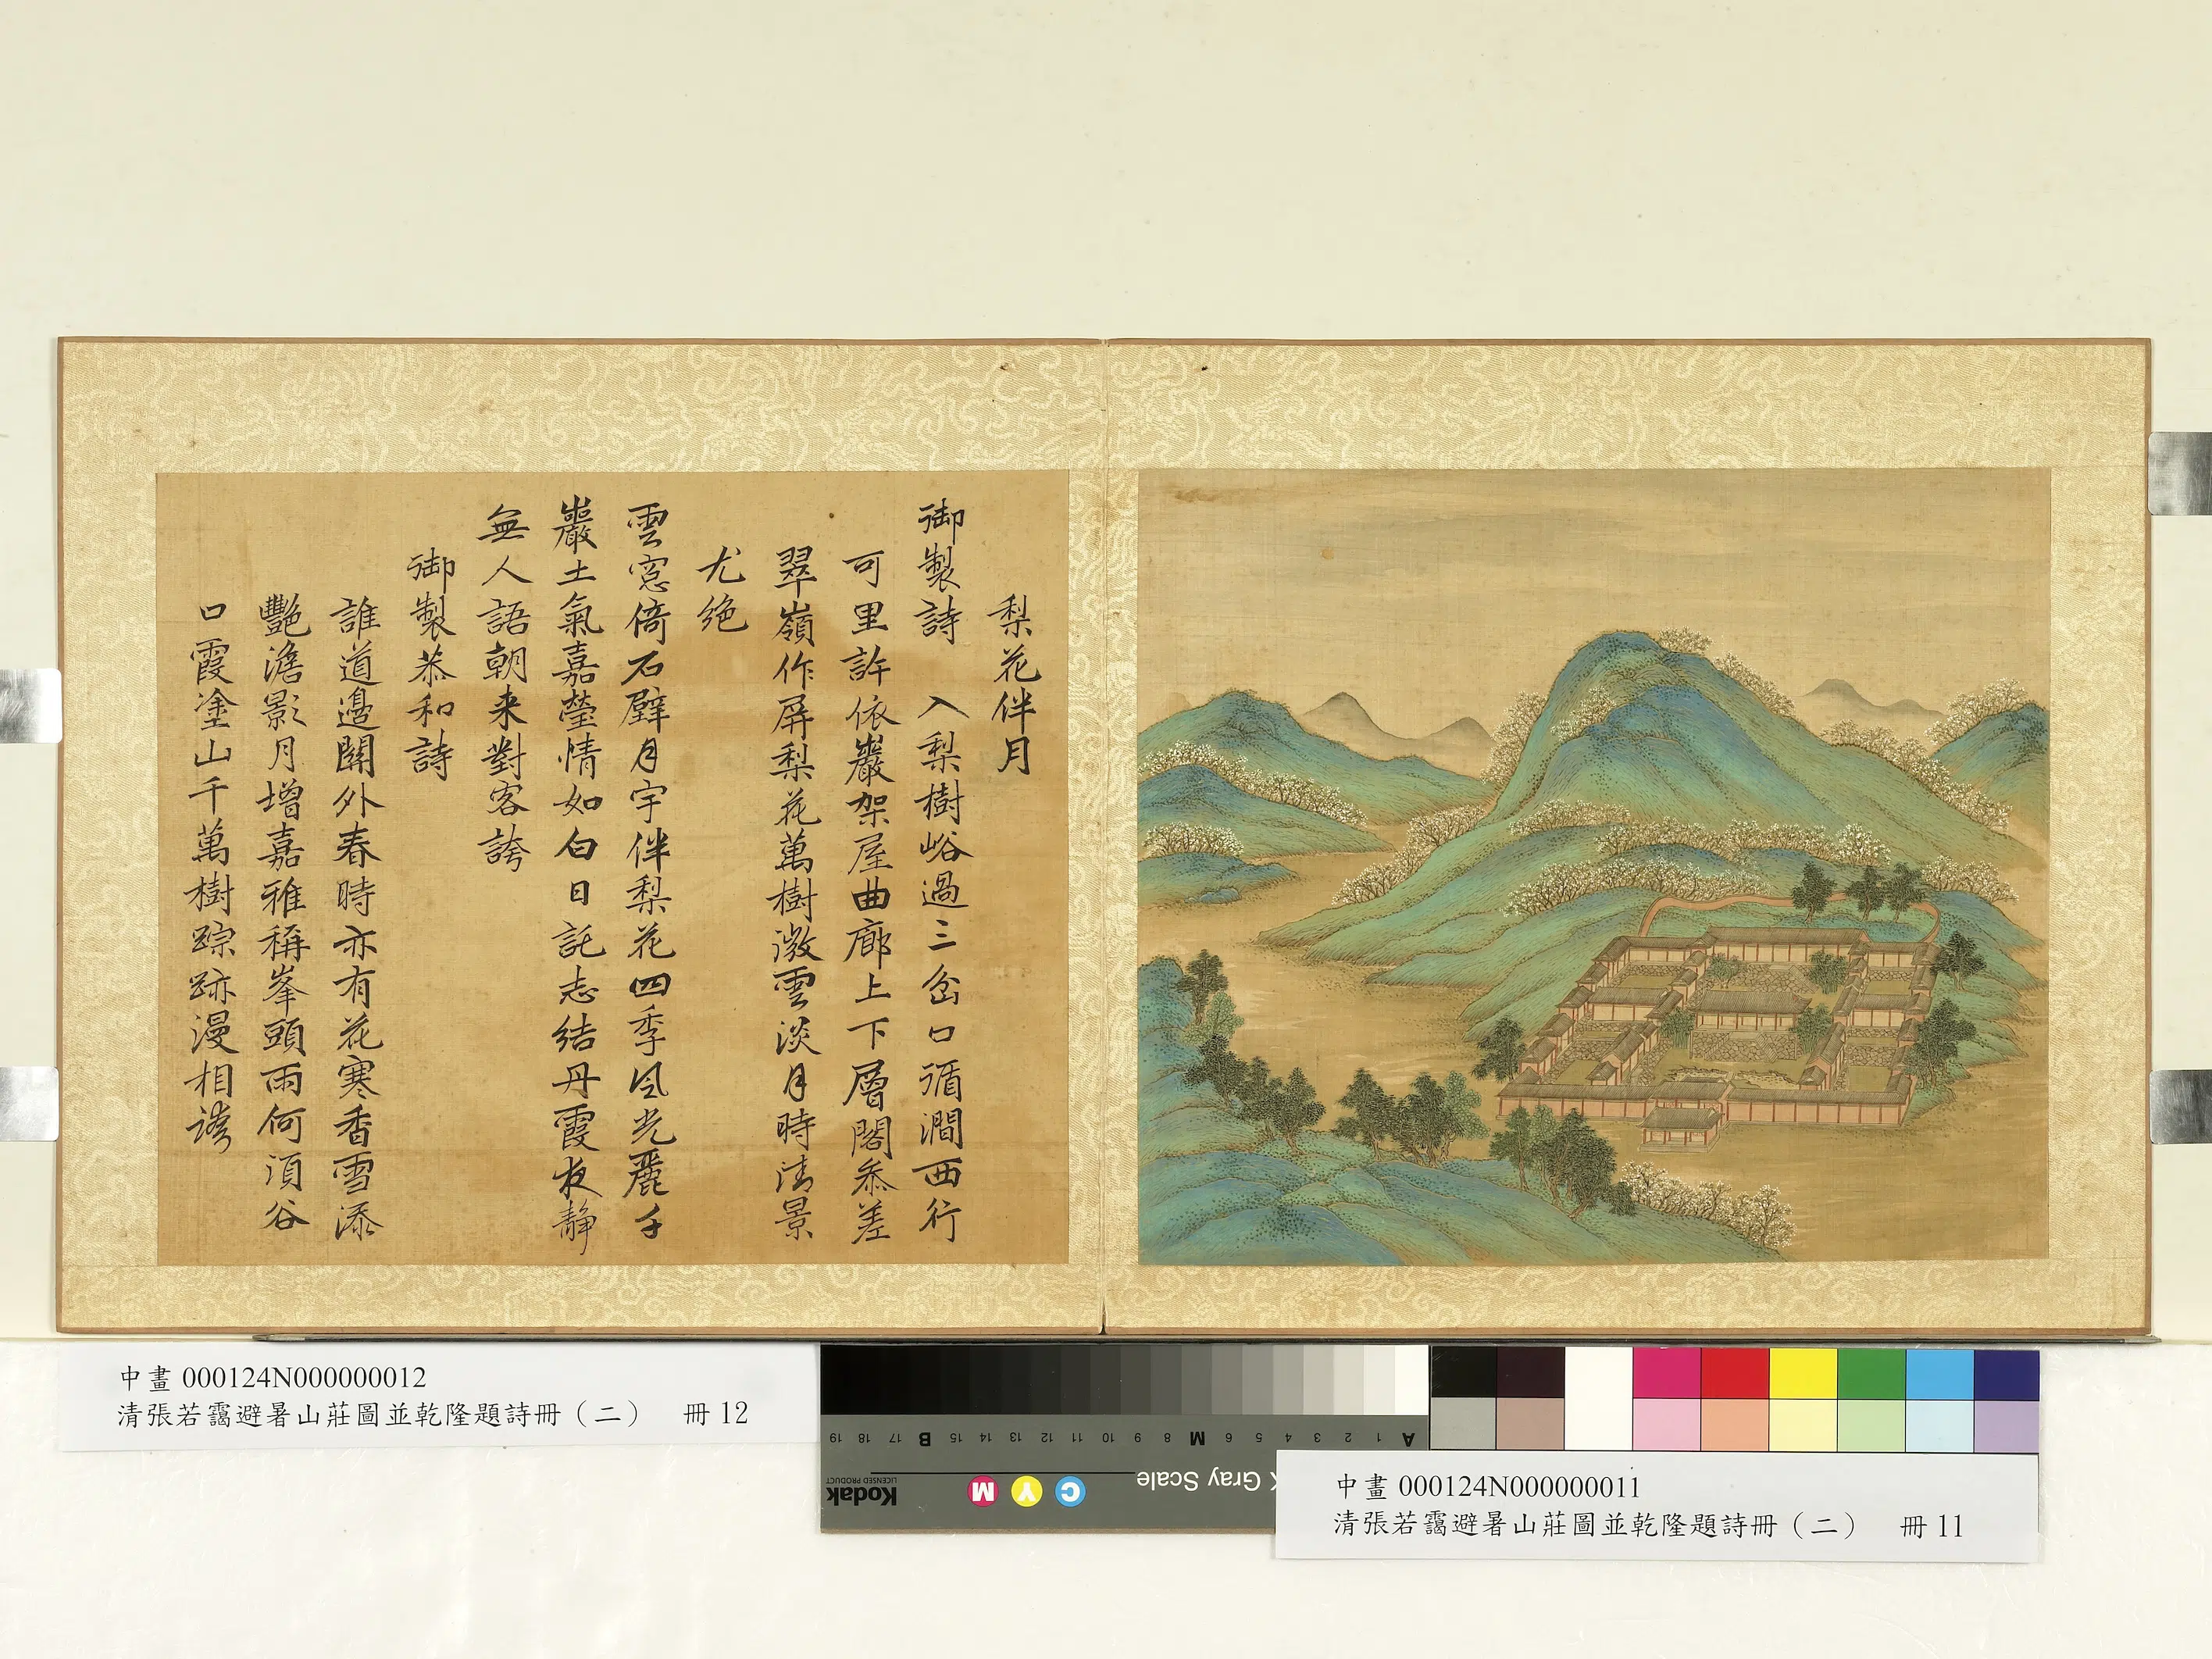 梨花伴月
御製詩　入梨樹峪過三岔口循澗西行
可里許依巖架屋曲廊上下層閣叅差
翠嶺作屏梨花萬樹微雲淡月時清景
尤絶
雲窓倚石壁月宇伴梨花四季風光麗千
巖土氣嘉瑩情如白日託志結丹霞夜靜
無人語朝来對客誇
御製恭和詩
誰道邊關外春時亦有花寒香雪添
艷澹影月增嘉雅稱峯頭雨何須谷
口霞塗山千萬樹踪跡漫相誇
中畫 000124N000000012
清張若靄避暑山莊圖並乾隆題詩冊（二）　冊 12
19 18 17 B 15 14 13 12 11 10 9 8 M 6 5 4 3 2 1 A
Kodak
LICENSED PRODUCT
M Y C
Gray Scale
中畫 000124N000000011
清張若靄避暑山莊圖並乾隆題詩冊（二）　冊 11